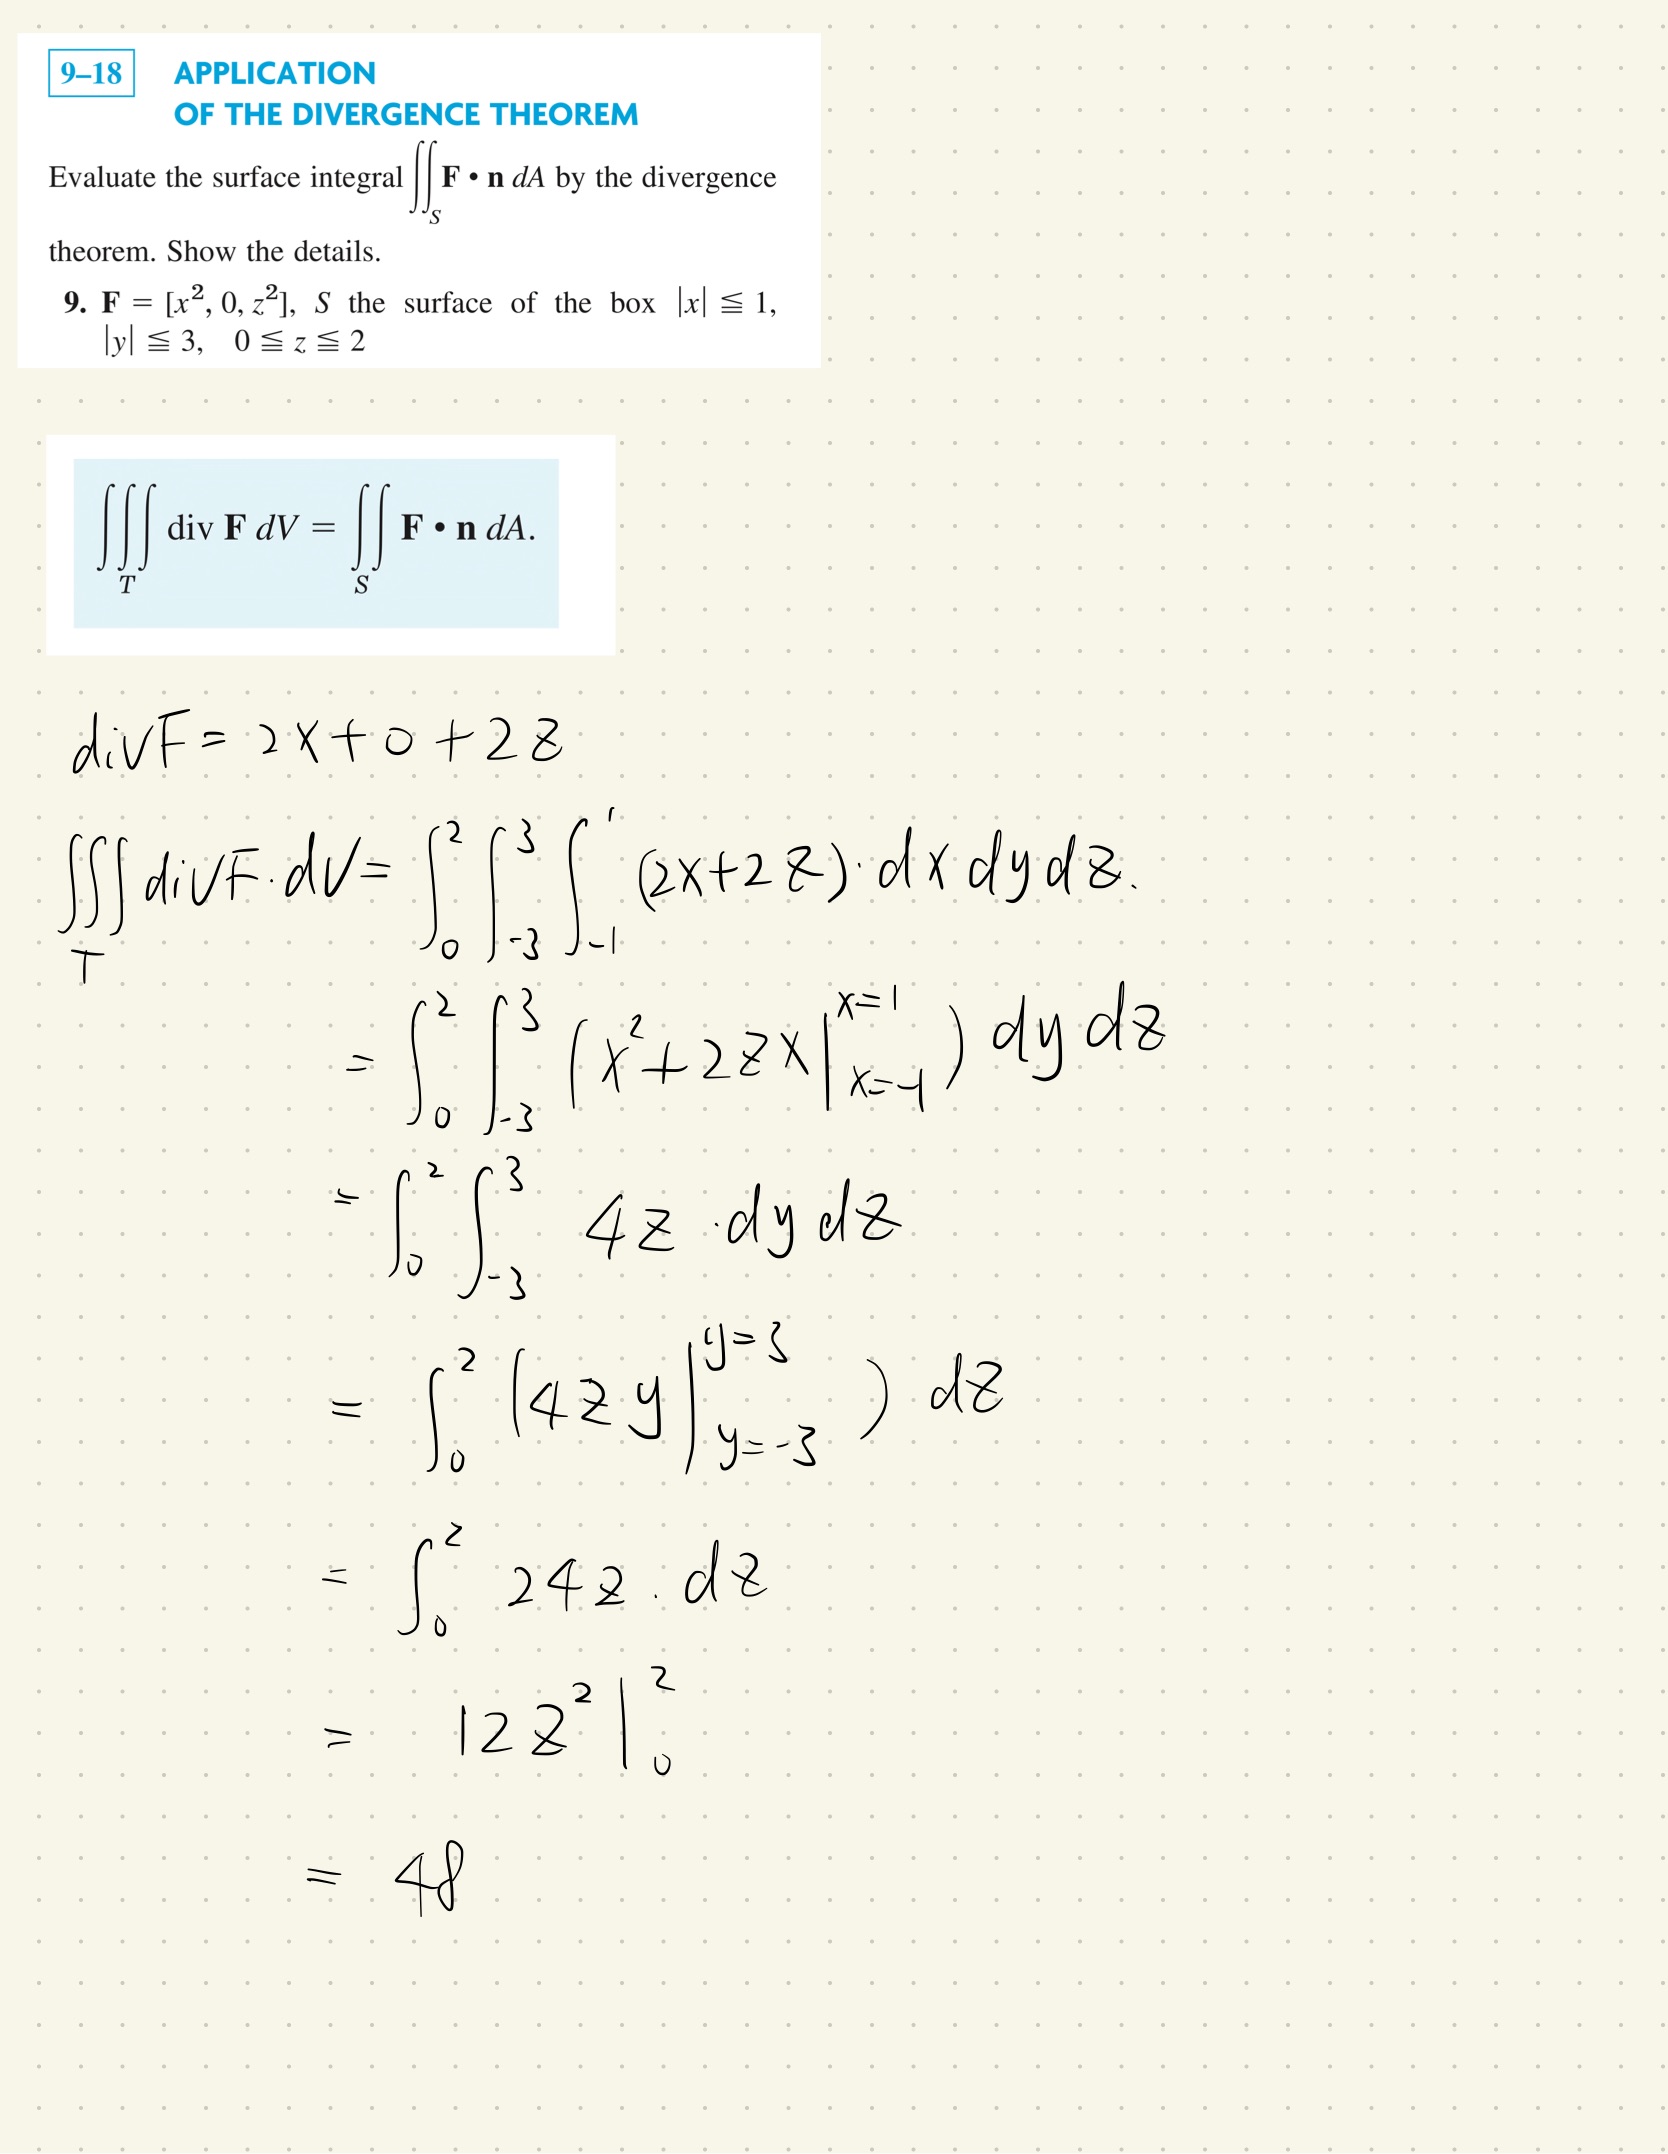 9–18 APPLICATION
OF THE DIVERGENCE THEOREM
Evaluate the surface integral ∬_S F • n dA by the divergence
theorem. Show the details.
9. F = [x², 0, z²], S the surface of the box |x| ≦ 1,
|y| ≦ 3, 0 ≦ z ≦ 2
∭_T div F dV = ∬_S F • n dA.
divF = 2x+0+2z
∭_T divF·dV = ∫_0^2 ∫_{-3}^3 ∫_{-1}^1 (2x+2z)·dxdydz.
= ∫_0^2 ∫_{-3}^3 (x²+2zx|_{x=-1}^{x=1}) dydz
= ∫_0^2 ∫_{-3}^3 4z·dydz
= ∫_0^2 (4zy|_{y=-3}^{y=3}) dz
= ∫_0^2 24z.dz
= 12z²|_0^2
= 48